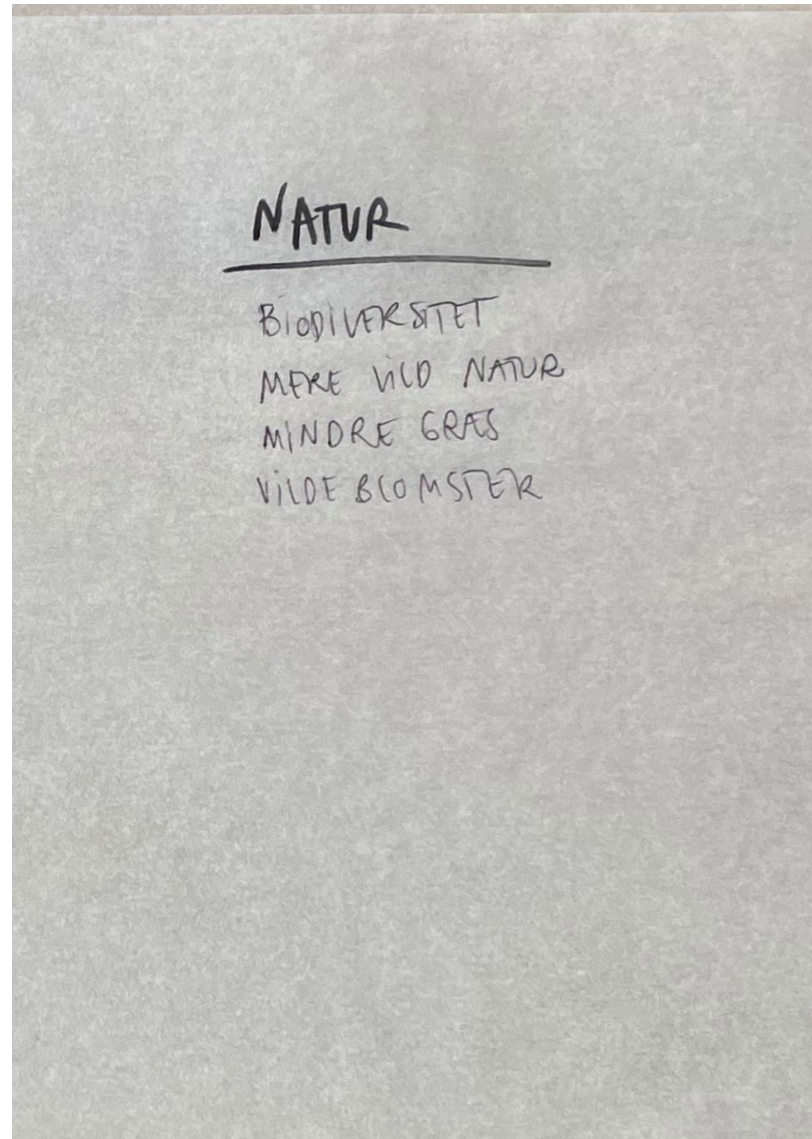 NATUR
BIODIVERSITET
MERE VILD NATUR
MINDRE GRÆS
VILDE BLOMSTER